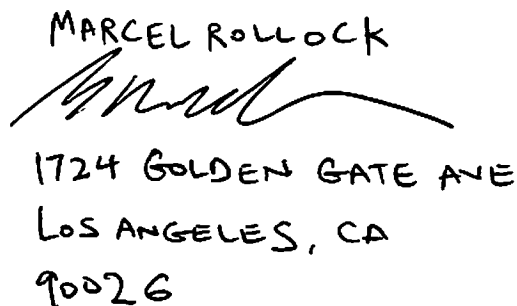 MARCEL ROLLOCK
1724 GOLDEN GATE AVE
LOS ANGELES, CA
90026